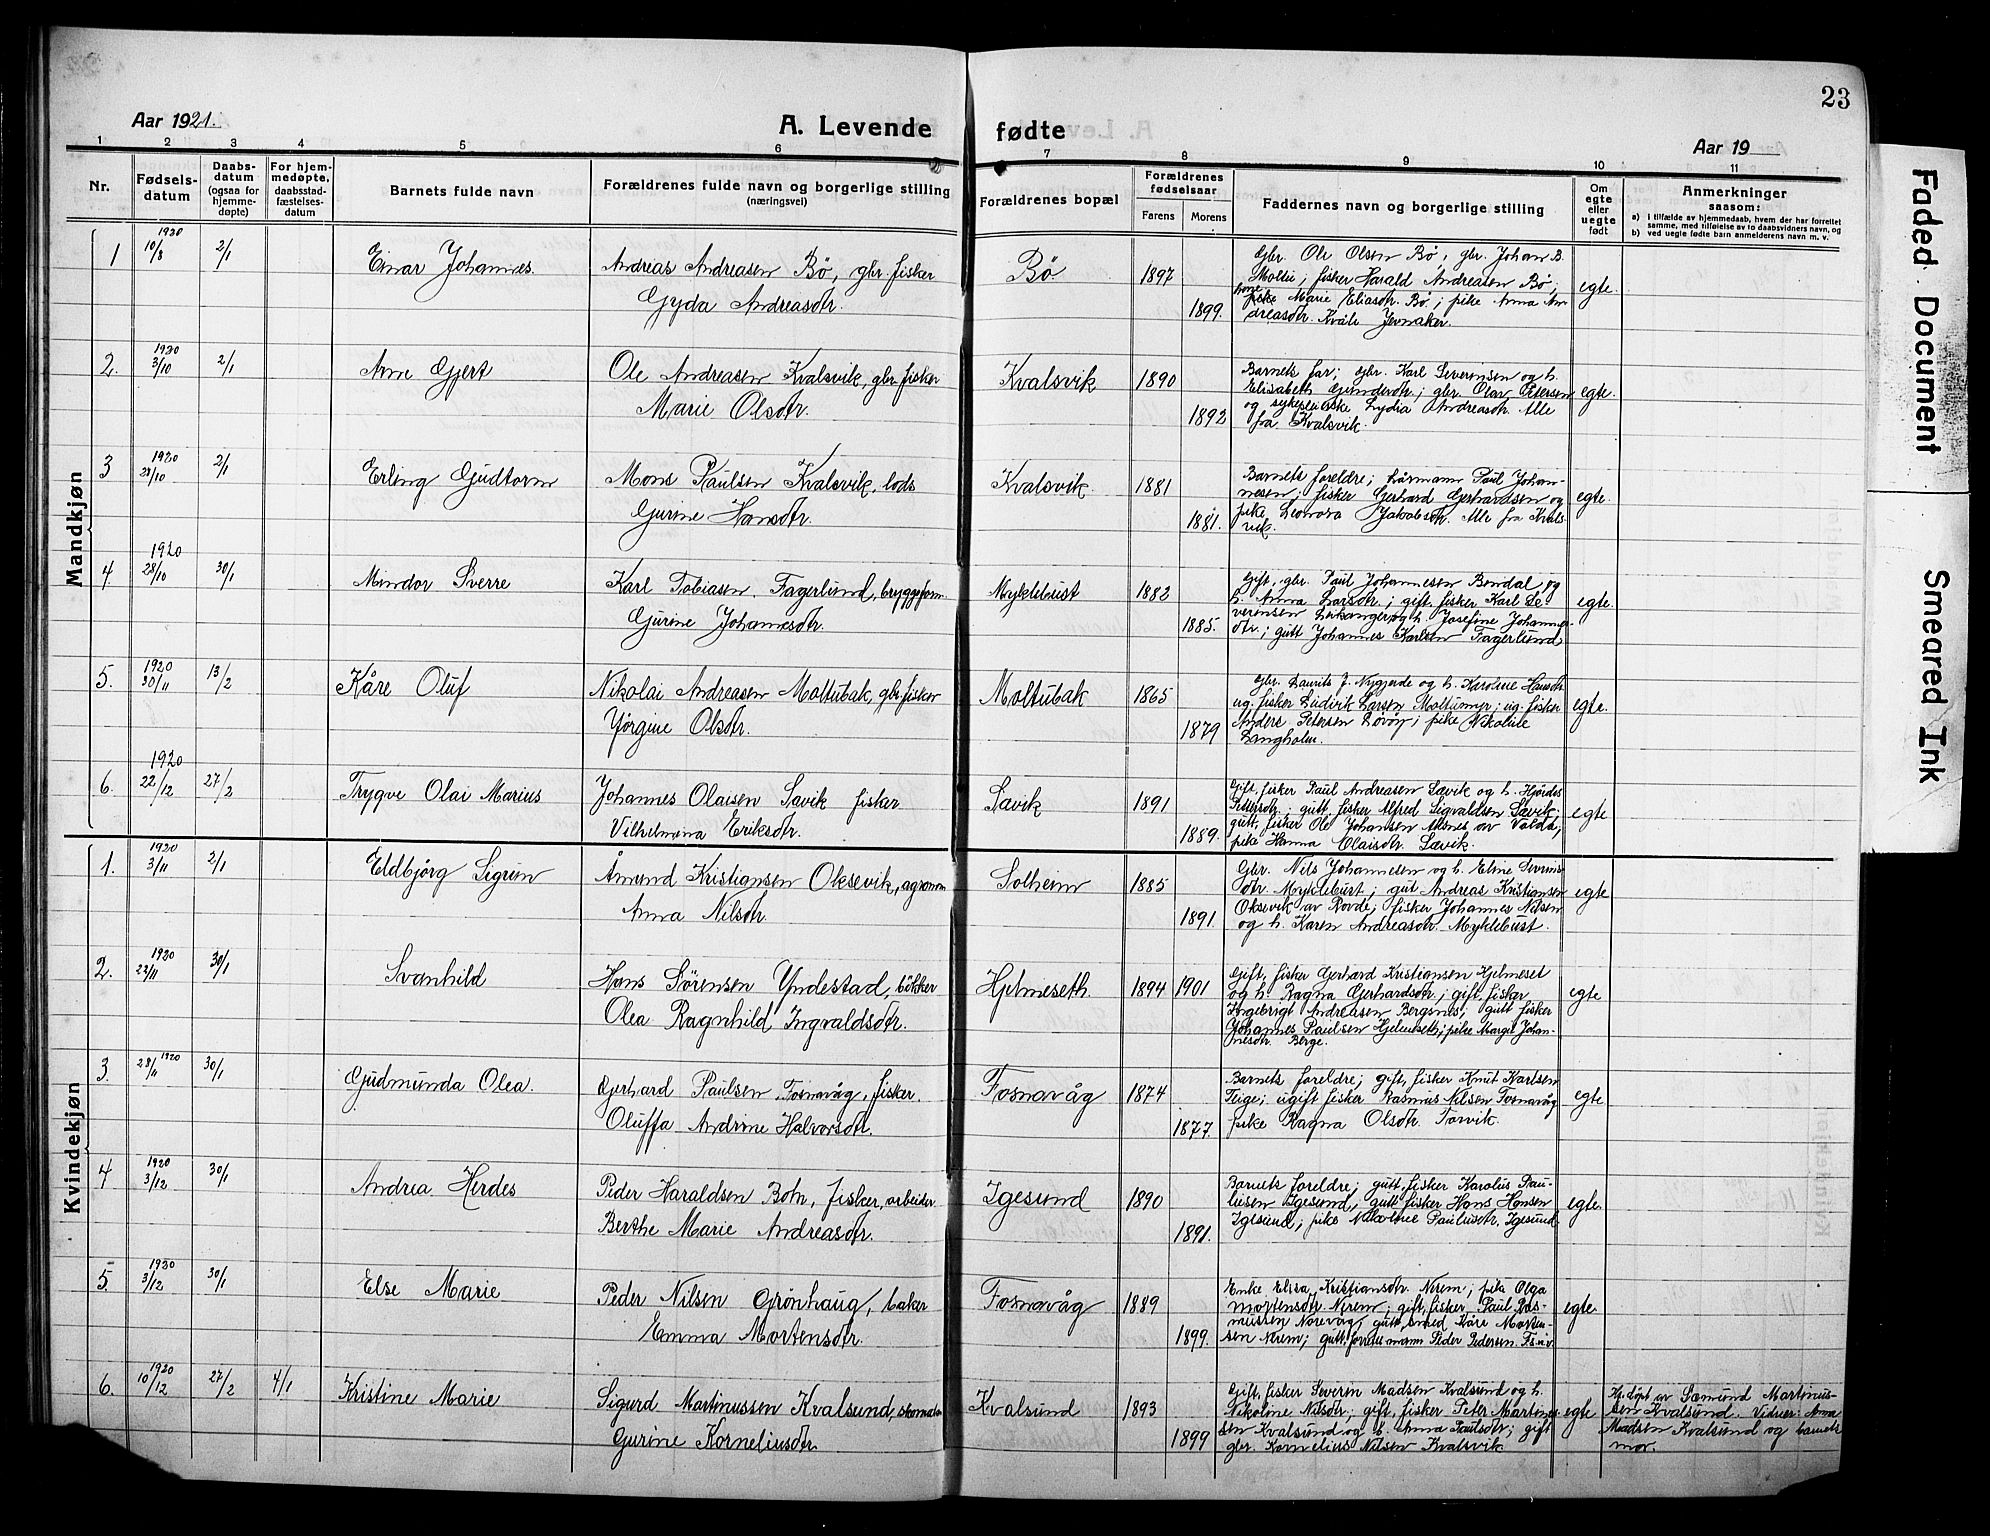 23
Aar 1921.
A. Levende fødte
Aar 19
1 2 3 4 5 6 7 8 9 10 11
Nr.
Fødsels-
datum
Daabs-
datum
(ogsaa for
hjemme-
døpte)
For hjem-
medøpte,
daabsstad-
fæstelses-
datum
Barnets fulde navn
Forældrenes fulde navn og borgerlige stilling
(næringsvei)
Forældrenes bopæl
Forældrenes
fødselsaar
Farens
Morens
Faddernes navn og borgerlige stilling
Om
egte
eller
uegte
født
Anmerkninger
saasom:
a) i tilfælde av hjemmedaab, hvem der har forrettet
samme, med tilføielse av to daabsvidners navn, og
b) ved uegte fødte barn anmelderens navn m. v.
Mandkjøn
1
1920
10/8
2/1
Einar Johannes.
Andreas Andreasen Bø, gbr. fisker
Gyda Andreasdtr.
Bø
1897
1899.
Gbr. Ole Olsen Bø, gbr. Johan B.
Moltu; fisker Harald Andreasen Bø;
kone
pike Marie Eliasdtr. Bø; pike Anna An-
dreasdtr. Kvåle Jevnaker.
egte.
2.
1920
3/10
2/1
Arne Gjert
Ole Andreasen Kvalsvik, gbr. fisker
Marie Olsdtr.
Kvalsvik
1890
1892
Barnets far; gbr. Karl Severinsen og h.
Elisabeth Gundersdtr; gbr. Olav Petersen
og sykepleierske Lydia Andreasdtr. Alle
fra Kvalsvik.
egte.
3
1920
27/10
2/1
Erling Gudtorm
Mons Paulsen Kvalsvik, lods
Gurine Hansdtr.
Kvalsvik
1881
1881.
Barnets foreldre; Paul Johan-
nesen; fisker Gerhard Gerhardsen og
pike Leonora Jakobsdtr. Alle fra Kvals-
vik.
egte.
4
1920
28/10
30/1
Mindor Sverre
Karl Tobiasen Fagerlund, bryggeform.
Gurine Johannesdtr.
Myklebust
1882
1885.
Gift, gbr. Paul Johannesen Bondal og
h. Anna Larsdtr.; gift, fisker Karl Se-
verinsen Leikanger og h. Josefine Johannes-
dtr.; gutt Johannes Karlsen Fagerlund
egte.
5.
1920
30/11
13/2
Kåre Oluf
Nikolai Andreasen Moltubak, gbr. fisker
Jørgine Olsdtr.
Moltubak
1865
1879
Gbr. Laurits J. Nygjerde og h. Karoline Hansdtr.
ug. fisker Ludvik Larsen Moltumyr; ug. fisker
Anders Petersen Løvøy; pike Nikoline
Langholm.
egte.
6.
1920
22/12
27/2
Trygve Olai Marius
Johannes Olaisen Sævik fisker
Vilhelmina Eriksdtr.
Sævik
1891
1889.
Gift, fisker Paul Andreasen Sævik og h. Hjørdis
Pettersdtr; gutt, fisker Alfred Sigvaldsen Sævik.
gutt, fisker Ole Johansen Aknes av Volda,
pike Hanna Olaisdtr. Sævik.
egte
Kvindekjøn
1.
1920
3/11
2/1
Eldbjørg Sigrun
Åmund Kristiansen Oksevik, agronom
Anna Nilsdtr.
Solheim
1885
1891.
Gbr. Nils Johannesen og h. Eline Severins-
dtr. Myklebust; gut Andreas Kristiansen
Oksevik av Rovde; fisker Johannes Nilsen
og h. Karen Andreasdtr. Myklebust.
egte
2.
1920
23/11
30/1
Svanhild
Hans Sørensen Yndestad, bøkker
Olea Ragnhild Ingvaldsdtr.
Hjelmeseth
1894
1901
Gift, fisker Gerhard Kristiansen Hjelmeset
og h. Ragna Gerhardsdtr; gift, fisker
Ingebrigt Andreasen Bergsnes; gutt fisker
Johannes Paulsen Hjelmseth; pike Margit Johan-
nesdtr. Berge.
egte
3.
1920
28/11
30/1
Gudmunda Olea.
Gerhard Paulsen Fosnavåg, fisker
Oluffa Andrine Halvorsdtr.
Fosnavåg
1874
1877.
Barnets foreldre; gift, fisker Knut Karlsen
Teige; ugift fisker Rasmus Nilsen Fosnavåg
pike Ragna Olsdtr. Torvik.
egte
4
1920
3/12
30/1
Andrea Herdes
Peder Haraldsen Botn, fisker, arbeider
Berthe Marie Andreasdtr.
Igesund
1890
1891.
Barnets foreldre; gutt, fisker Karolus Pau-
lusen Igesund, gutt fisker Hans Hansen
Igesund; pike Nikoline Paulusdtr. Igesund
egte.
5.
1920
3/12
30/1
Else Marie
Peder Nilsen Grønhaug, baker
Emma Mortensdtr.
Fosnavåg
1889
1899.
Enke Elisa Kristiansdtr. Nerem; pike Olga
Mortensdtr Nerem; gift, fisker Paul Ras-
mussen Norevåg, gutt smed Kåre Morten-
sen Nerem; gutt, forretn.mann Peder Pedersen, Fs.v.
egte.
6.
1920
10/12
27/2
4/1
Kristine Marie
Sigurd Martinussen Kvalsund, skomaker
Gurine Korneliusdtr.
Kvalsund
1893
1899
Gift, fisker Severin Madsen Kvalsund og h.
Nikoline Nilsdtr; gift, fisker Peter Martinus-
sen Kvalsund og h. Anna Paulsdtr; gift
gbr. Kornelius Nilsen Kvalsvik
egte
Hj.døpt av Sæmund Martinus-
sen Kvalsund. Vidner: Anna
Madsen Kvalsund og barnets
mor.
Faded Document
Smeared Ink